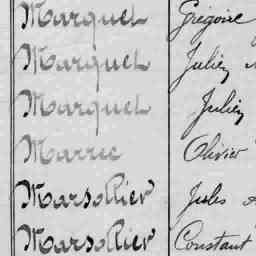 Marquet Grégoire
Marquet Julien
Marquet Julien
Marrec Olivier
Marsollier Jules
Marsollier Constant